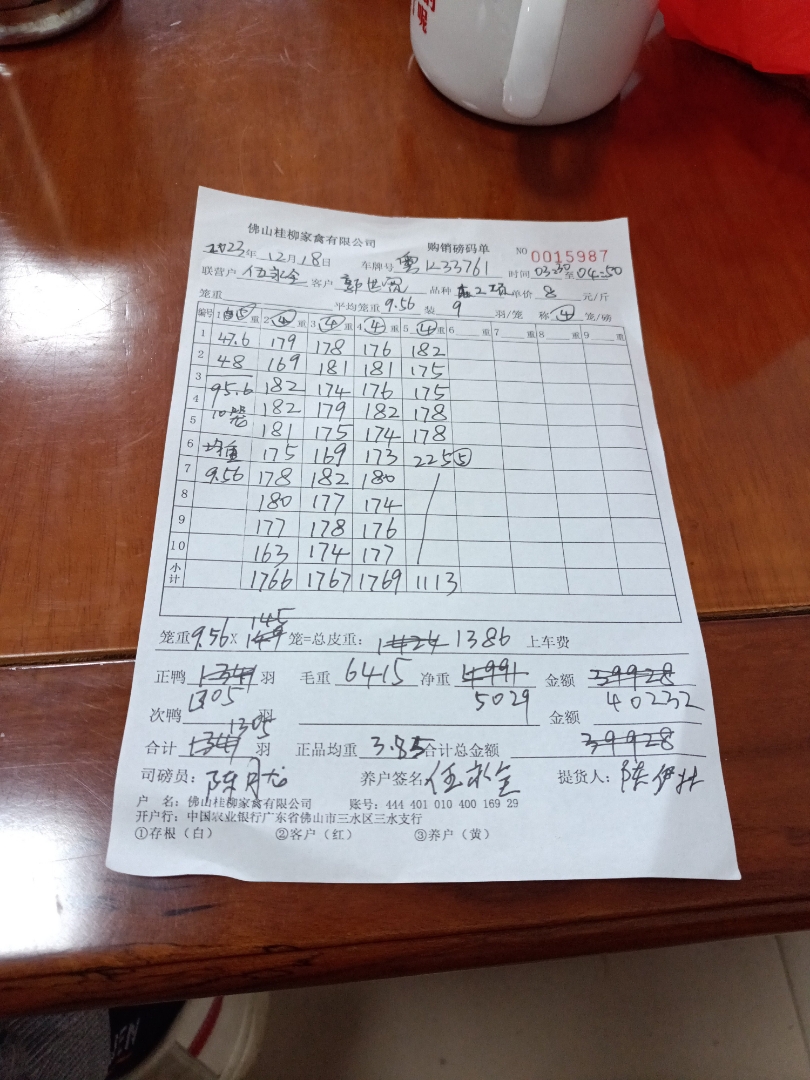 呢
佛山桂柳家禽有限公司 购销磅码单 NO 0015987
2023年12月18日 车牌号 粤K33761 时间 03:30 至 04:50
联营户 伍永全 客户 品种 单价 8 元/斤
笼重 平均笼重 9.56 装 9 羽/笼 称 ④ 笼/磅
编号 1 ⑤ 重 2 ④ 重 3 ④ 重 4 ④ 重 5 ④ 重 6 重 7 重 8 重 9 重
1 47.6 179 178 176 182
2 48 169 181 181 175
3 95.6 182 174 176 175
4 10笼 182 179 182 178
5 181 175 174 178
6 均重 175 169 173 225⑤
7 9.56 178 182 180
8 180 177 174
9 177 178 176
10 163 174 177
小计 1766 1767 1769 1113
145
笼重 9.56 × 149 笼=总皮重: 1424 1386 上车费
正鸭 1341 羽 毛重 6415 净重 4991 金额 39928
1305 5029 40232
次鸭 羽 金额
1305
合计 1341 羽 正品均重 3.85 合计总金额 39928
司磅员: 陈月龙 养户签名 伍永全 提货人: 陈伊林
户 名: 佛山桂柳家禽有限公司 账号: 444 401 010 400 169 29
开户行: 中国农业银行广东省佛山市三水区三水支行
①存根(白) ②客户(红) ③养户(黄)